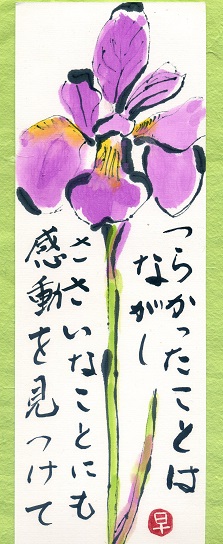 つらかったことは
ながし
ささいなことにも
感動を見つけて
早